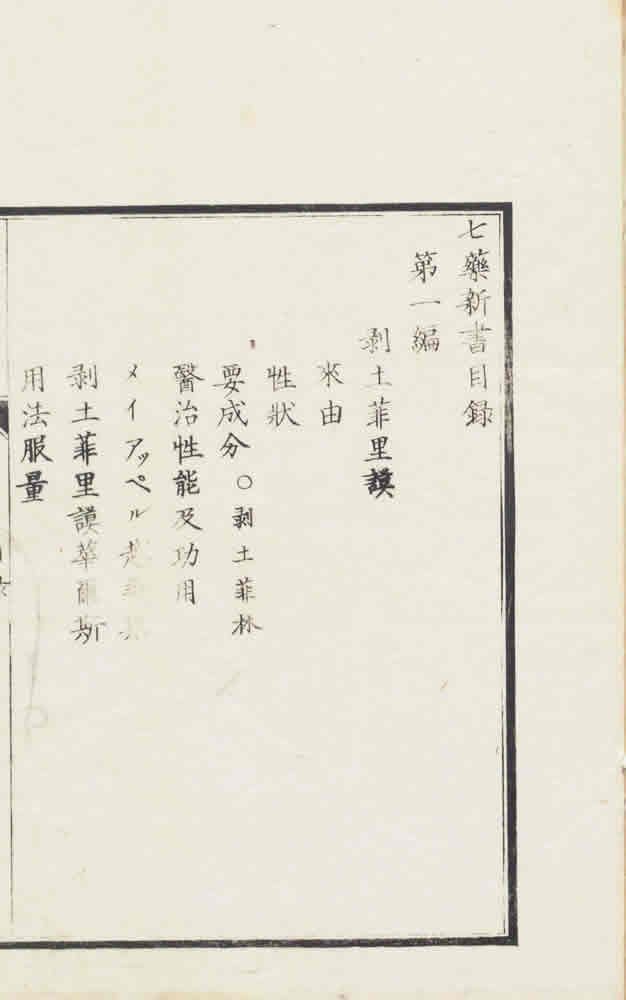 七藥新書目録
第一編
剥土菲里謨
來由
性狀
要成分 ○剥土菲林
醫治性能及功用
メイアッペル
剥土菲里謨華爾斯
用法服量